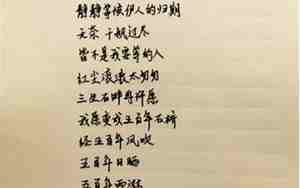 静静等候伊人的归期
无奈 千帆过尽
皆不是我要等的人
红尘滚滚太匆匆
三生石畔寻前愿
我愿变成五百年石桥
经五百年风吹
五百年日晒
五百年雨淋